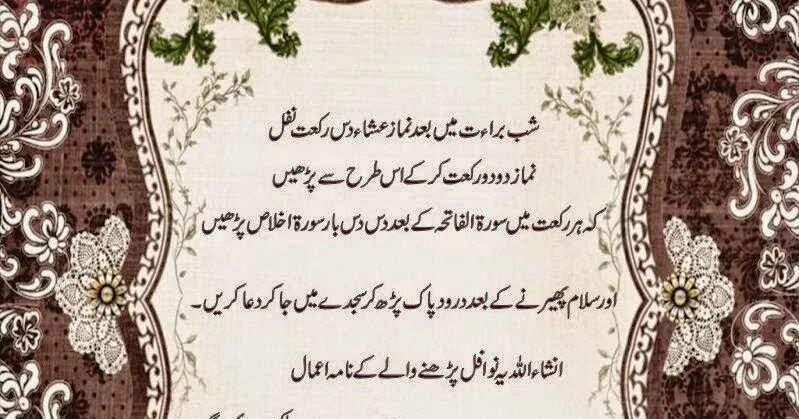 شب براءت میں بعد نماز عشاء دس رکعت نفل
نماز دو دو رکعت کر کے اس طرح سے پڑھیں
کہ ہر رکعت میں سورۃ الفاتحہ کے بعد دس دس بار سورۃ اخلاص پڑھیں
اور سلام پھیرنے کے بعد درود پاک پڑھ کر سجدے میں جا کر دعا کریں۔
انشاء اللہ یہ نوافل پڑھنے والے کے نامہ اعمال